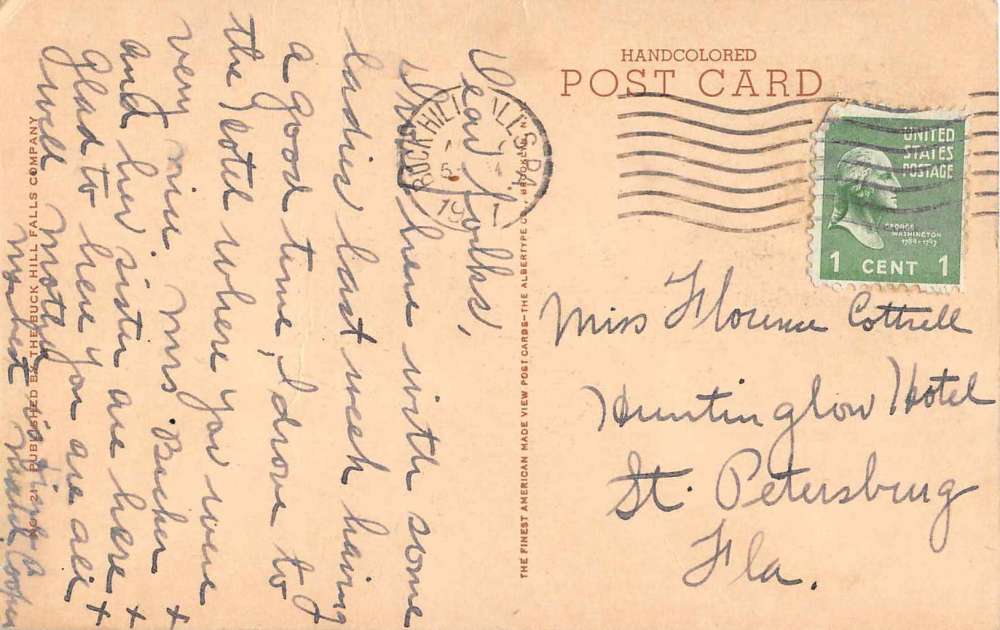 HANDCOLORED
POST CARD
BUCK HILL FALLS PA.
UNITED
STATES
POSTAGE
GEORGE
WASHINGTON
1789-1797
1 CENT 1
Miss Florence Cottrell
Huntinglow Hotel
St. Petersburg
Fla.
Dear folks,
here with some
ladies last week having
a good time, I drove to
the Hotel where you were
very nice. Mrs. +
and her sister are here +
glad to hear you are all +
well Mother
Cooper
THE FINEST AMERICAN MADE VIEW POST CARDS—THE ALBERTYPE CO., BROOKLYN
21 PUBLISHED BY THE BUCK HILL FALLS COMPANY